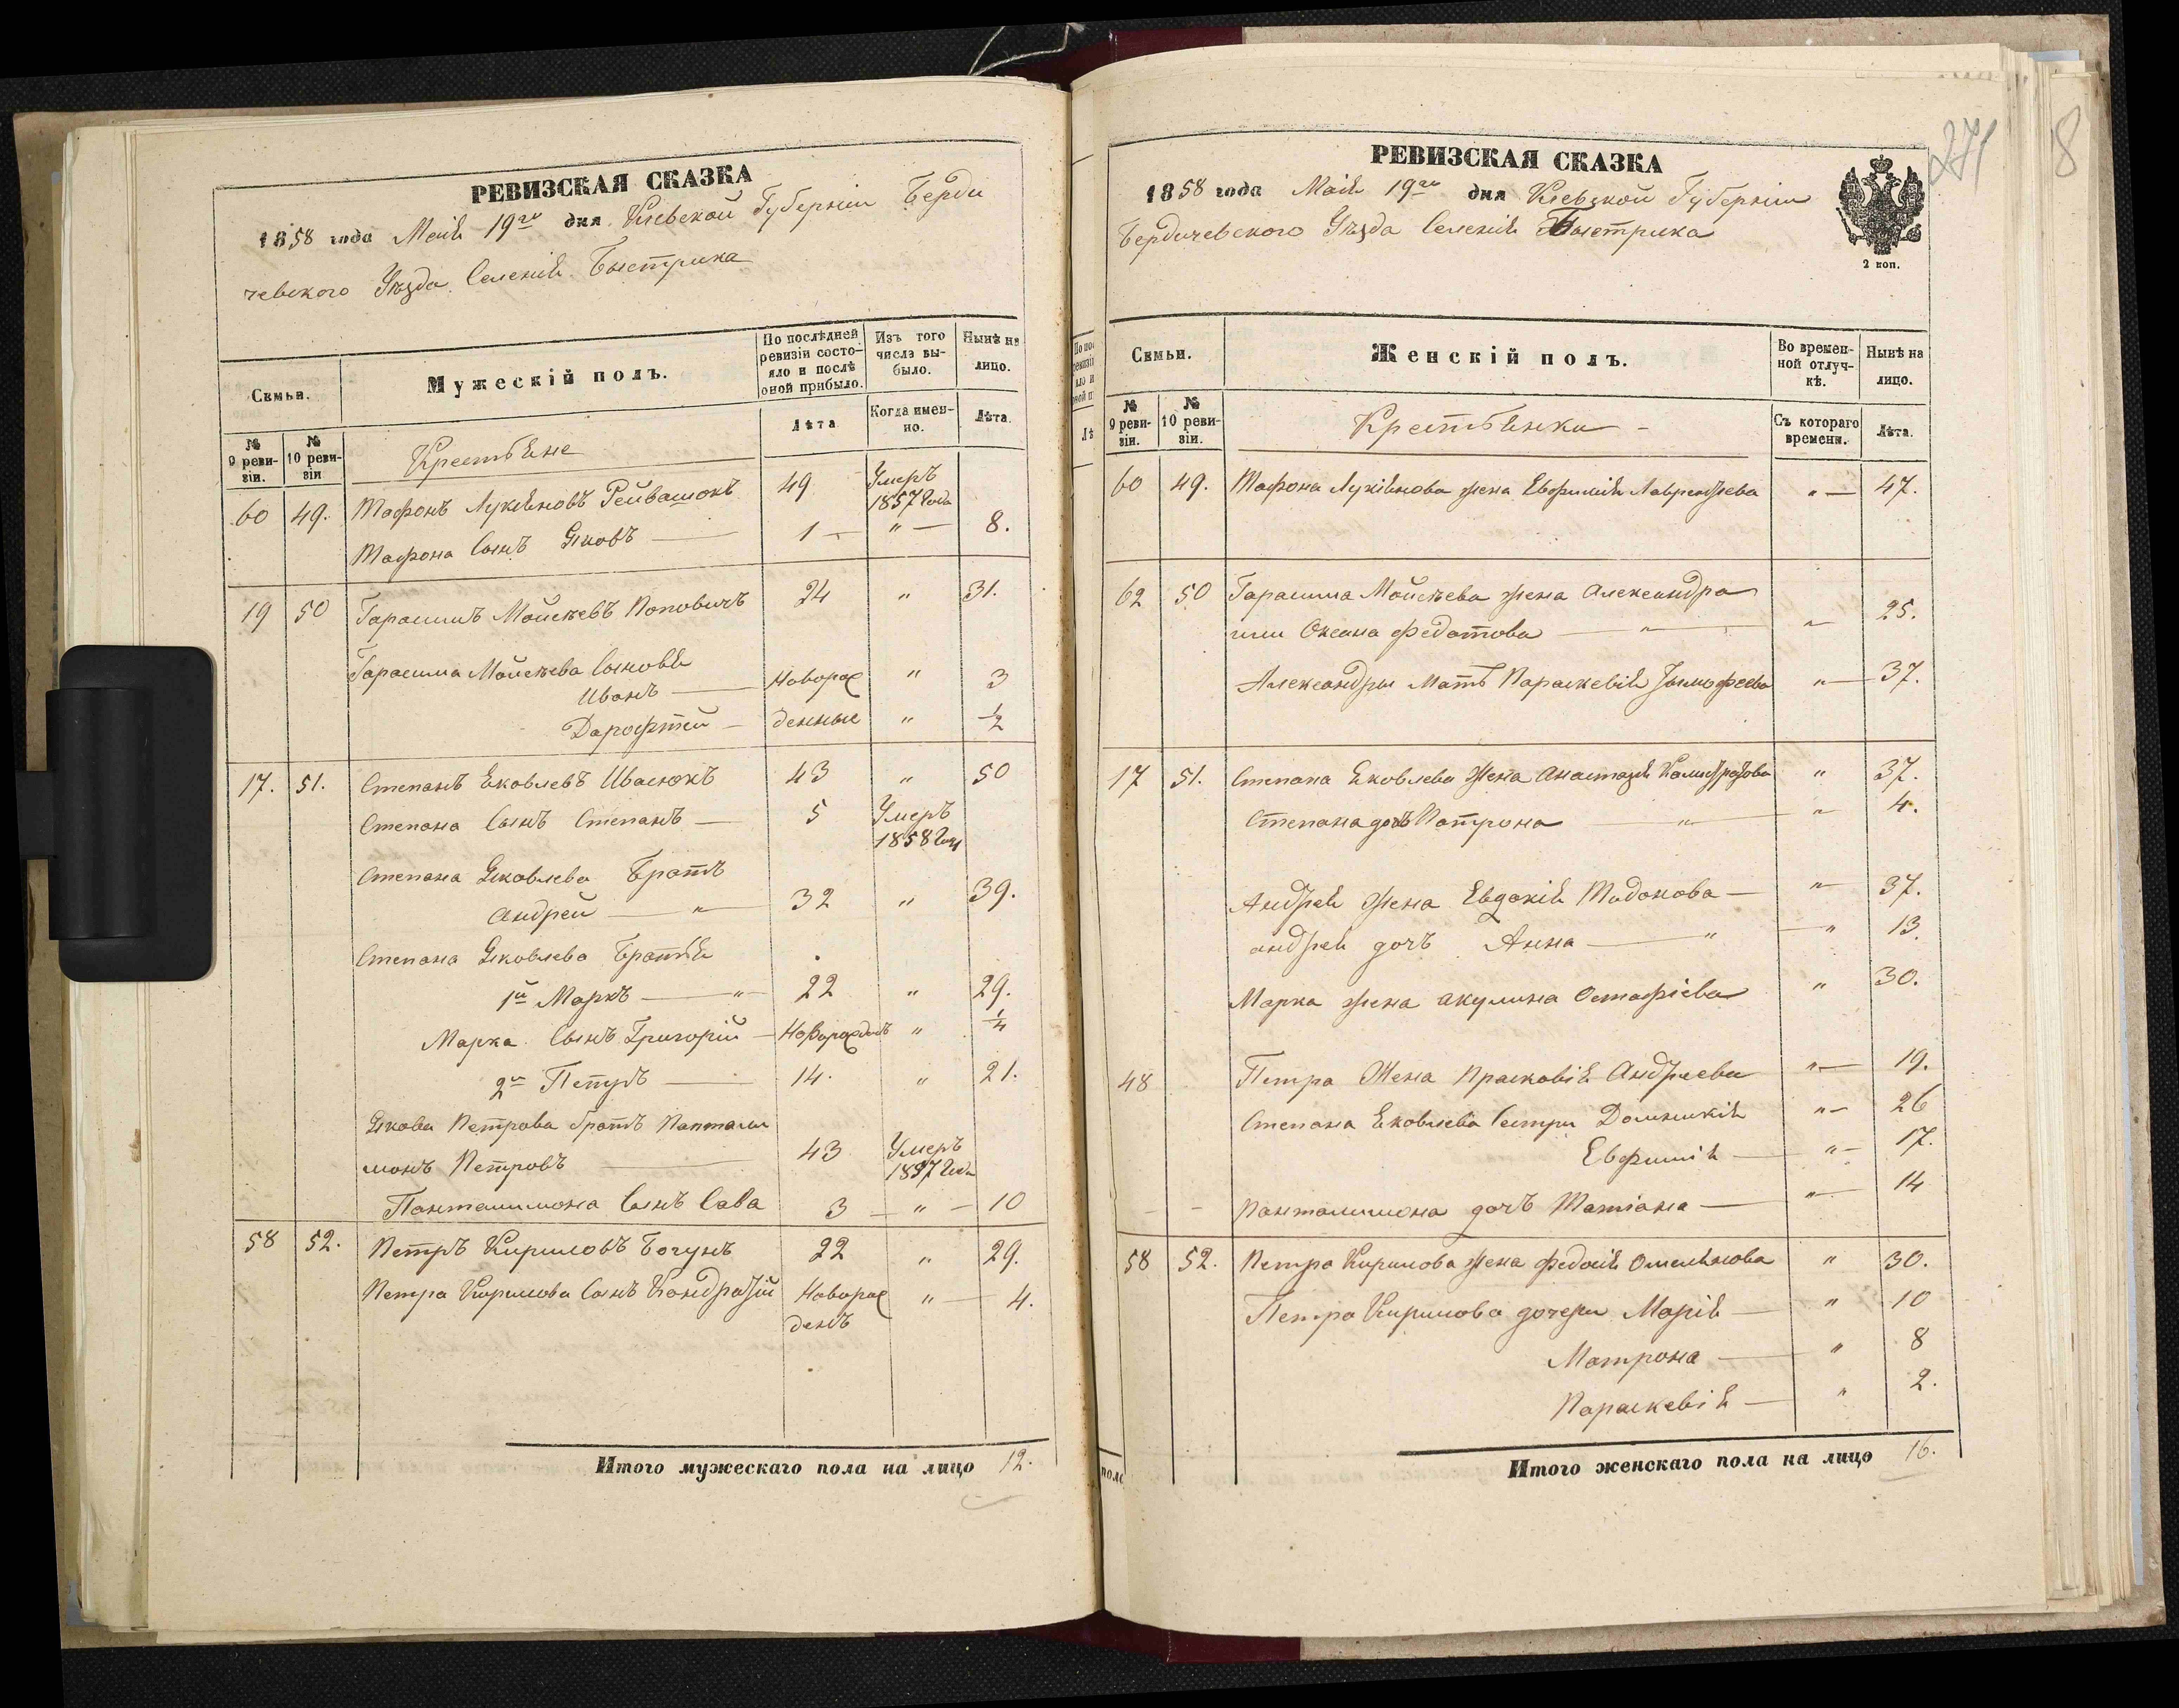 РЕВИЗСКАЯ СКАЗКА
1858 года Маія 19го дня Кіевской Губерніи Берди
чевского Уѣзда Селенія Быстрика
Семьи.
Мужескій полъ.
По послѣдней ревизіи состояло и послѣ оной прибыло.
Изъ того числа выбыло.
Нынѣ на лицо.
№ 9 ревизіи.
№ 10 ревизіи
Крестьяне
Лѣта
Когда именно.
Лѣта.
60 49. Мафонъ Лукяновъ 49 Умеръ 1857 Года
Мафона Сынъ Яковъ 1 " 8.
19 50 Гарасимъ Мойсѣевъ Поповичъ 24 " 31.
Гарасима Мойсѣева Сыновья
Иванъ Новорож " 3
Дарофтей денные " 1/2
17. 51. Степанъ Яковлевъ Ивасюкъ 43 " 50
Степана Сынъ Степанъ 5 Умеръ 1858 Года
Степана Яковлева Братъ
Андрей " 32 " 39.
Степана Яковлева Братья
1й Маркъ " 22 " 29.
Марка Сынъ Григорій Новорожденъ " 1/4
2й Петръ 14. " 21.
Якова Петрова братъ Пантали
монъ Петровъ 43 Умеръ 1857 Года
Панталимона Сынъ Сава 3 " 10
58 52. Петръ Кириловъ Богунъ 22 " 29.
Петра Кирилова Сынъ Кондратій Новорож " 4.
денъ
Итого мужескаго пола на лицо 12.
РЕВИЗСКАЯ СКАЗКА
271
8
1858 года Маія 19го дня Кіевской Губерніи
Бердичевского Уѣзда Селенія Быстрика
2 коп.
Семьи.
Женскій полъ.
Во временной отлучкѣ.
Нынѣ на лицо.
№ 9 ревизіи.
№ 10 ревизіи.
Крестьянки
Съ котораго времени.
Лѣта.
60 49. Мафона Лукіянова жена Евфимія Лаврентьева " 47.
62 50 Гарасима Мойсѣева жена Александра
или Оксана Федотова " " 25.
Александры Мать Параскевія Тымофеева " 37.
17 51. Степана Яковлева Жена Анастазія " 37.
Степана дочъ Матрона " " 4.
Андрея Жена Евдокія " 37.
андрея дочъ Анна " " 13.
Марка жена акулина Остафіева " 30.
48 Петра Жена Прасковія Андреева " 19.
Степана Яковлева Сестры Домникія " 26
Евфимія " 17.
Панталимона дочъ Татіана " 14
58 52. Петра Кирилова жена Федосія Омелянова " 30.
Петра Кирилова дочери Марія " 10
Матрона " 8
Параскевія " 2.
Итого женскаго пола на лицо 16.